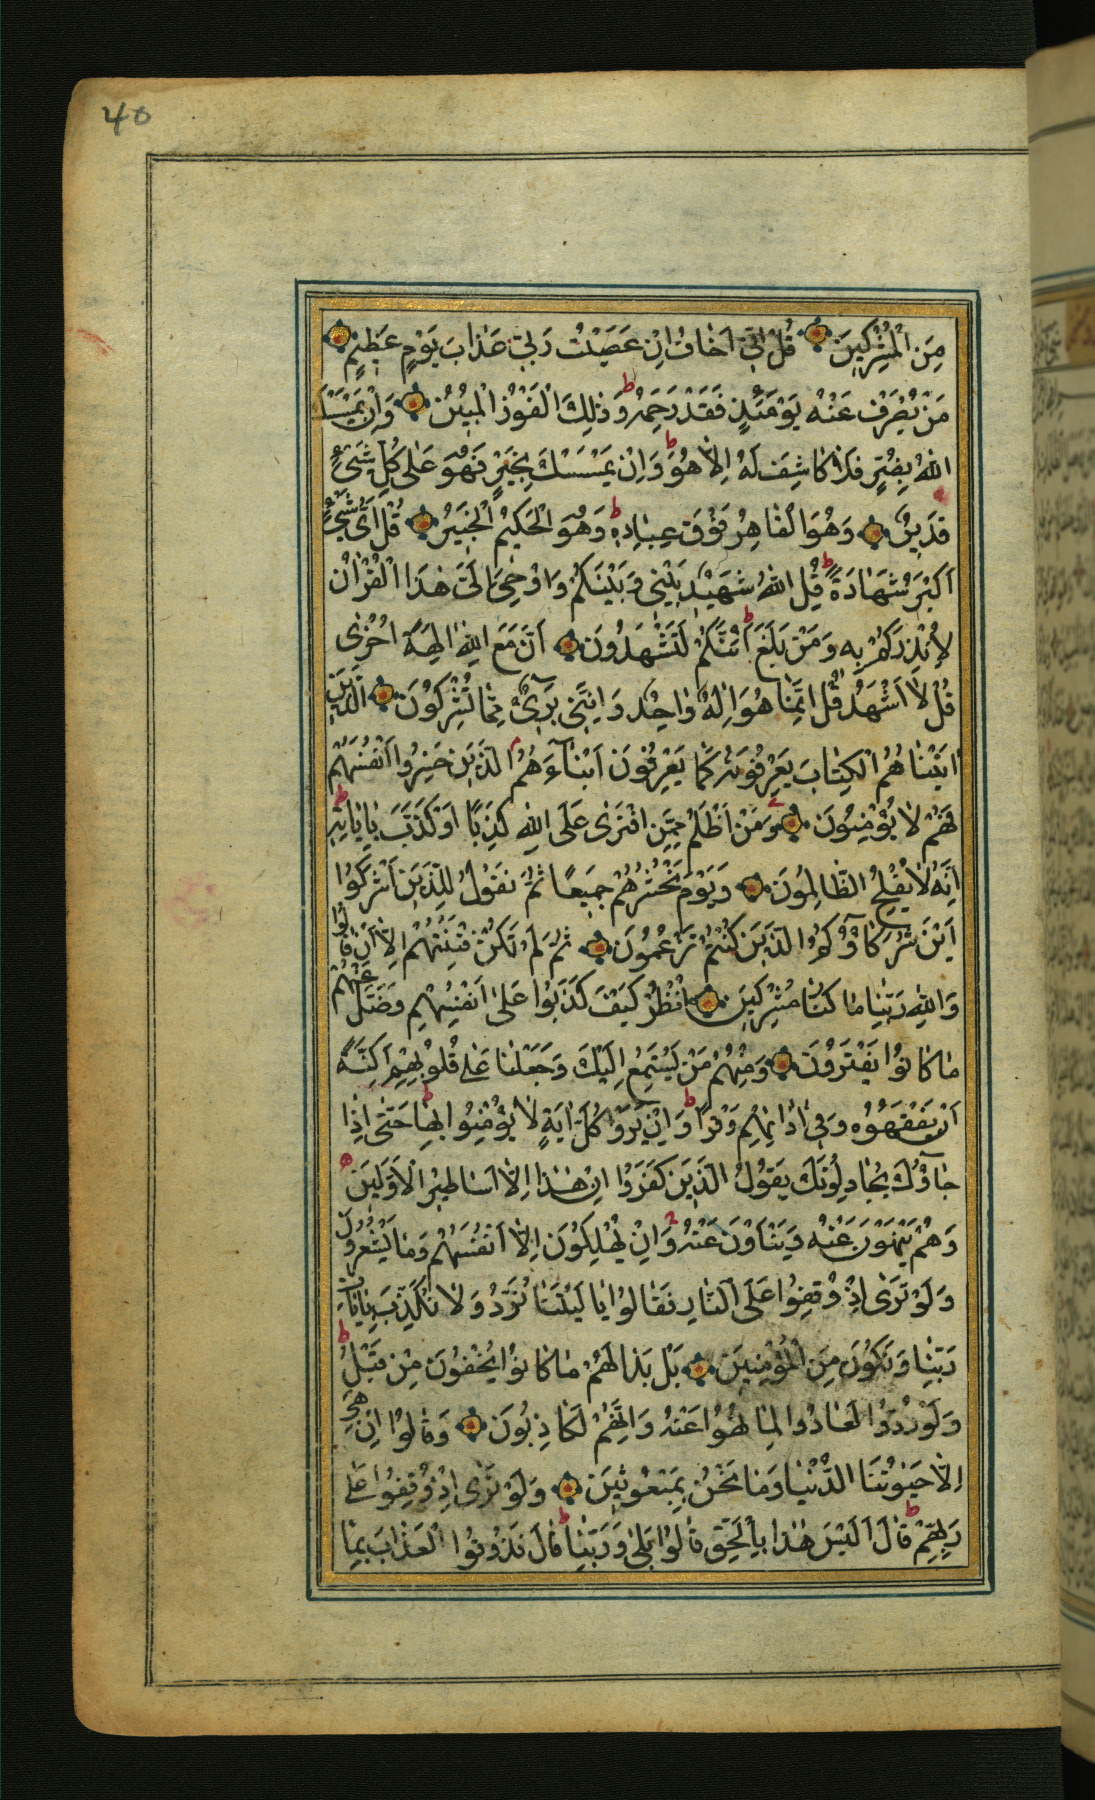 40
مِنَ الْمُشْرِكِينَ قُلْ اِنّٖى اَخَافُ اِنْ عَصَيْتُ رَبّٖى عَذَابَ يَوْمٍ عَظٖيمٍ
مَنْ يُصْرَفْ عَنْهُ يَوْمَئِذٍ فَقَدْ رَحِمَهُ ط وَذٰلِكَ الْفَوْزُ الْمُبٖينُ وَاِنْ يَمْسَسْكَ
اللّٰهُ بِضُرٍّ فَلَا كَاشِفَ لَهُ اِلَّا هُوَ ط وَاِنْ يَمْسَسْكَ بِخَيْرٍ فَهُوَ عَلٰى كُلِّ شَىْءٍ
قَدٖيرٌ وَهُوَ الْقَاهِرُ فَوْقَ عِبَادِهٖ ط وَهُوَ الْحَكٖيمُ الْخَبٖيرُ قُلْ اَىُّ شَىْءٍ
اَكْبَرُ شَهَادَةً ط قُلِ اللّٰهُ شَهٖيدٌ بَيْنٖى وَبَيْنَكُمْ وَاُوحِىَ اِلَىَّ هٰذَا الْقُرْاٰنُ
لِاُنْذِرَكُمْ بِهٖ وَمَنْ بَلَغَ ط اَئِنَّكُمْ لَتَشْهَدُونَ اَنَّ مَعَ اللّٰهِ اٰلِهَةً اُخْرٰى
قُلْ لَا اَشْهَدُ قُلْ اِنَّمَا هُوَ اِلٰهٌ وَاحِدٌ وَاِنَّنٖى بَرٖىءٌ مِمَّا تُشْرِكُونَ اَلَّذٖينَ
اٰتَيْنَاهُمُ الْكِتَابَ يَعْرِفُونَهُ كَمَا يَعْرِفُونَ اَبْنَآءَهُمْ م اَلَّذٖينَ خَسِرُوا اَنْفُسَهُمْ
فَهُمْ لَا يُؤْمِنُونَ وَمَنْ اَظْلَمُ مِمَّنِ افْتَرٰى عَلَى اللّٰهِ كَذِبًا اَوْ كَذَّبَ بِاٰيَاتِهٖ ط
اِنَّهُ لَا يُفْلِحُ الظَّالِمُونَ وَيَوْمَ نَحْشُرُهُمْ جَمٖيعًا ثُمَّ نَقُولُ لِلَّذٖينَ اَشْرَكُوا
اَيْنَ شُرَكَآؤُكُمُ الَّذٖينَ كُنْتُمْ تَزْعُمُونَ ثُمَّ لَمْ تَكُنْ فِتْنَتُهُمْ اِلَّا اَنْ قَالُوا
وَاللّٰهِ رَبِّنَا مَا كُنَّا مُشْرِكٖينَ اُنْظُرْ كَيْفَ كَذَبُوا عَلٰى اَنْفُسِهِمْ وَضَلَّ عَنْهُمْ
مَا كَانُوا يَفْتَرُونَ وَمِنْهُمْ مَنْ يَسْتَمِعُ اِلَيْكَ وَجَعَلْنَا عَلٰى قُلُوبِهِمْ اَكِنَّةً
اَنْ يَفْقَهُوهُ وَفٖى اٰذَانِهِمْ وَقْرًا ط وَاِنْ يَرَوْا كُلَّ اٰيَةٍ لَا يُؤْمِنُوا بِهَا ط حَتّٰى اِذَا
جَآؤُكَ يُجَادِلُونَكَ يَقُولُ الَّذٖينَ كَفَرُوا اِنْ هٰذَا اِلَّا اَسَاطٖيرُ الْاَوَّلٖينَ
وَهُمْ يَنْهَوْنَ عَنْهُ وَيَنْاَوْنَ عَنْهُ وَاِنْ يُهْلِكُونَ اِلَّا اَنْفُسَهُمْ وَمَا يَشْعُرُونَ
وَلَوْ تَرٰى اِذْ وُقِفُوا عَلَى النَّارِ فَقَالُوا يَا لَيْتَنَا نُرَدُّ وَلَا نُكَذِّبَ بِاٰيَاتِ
رَبِّنَا وَنَكُونَ مِنَ الْمُؤْمِنٖينَ بَلْ بَدَا لَهُمْ مَا كَانُوا يُخْفُونَ مِنْ قَبْلُ ط
وَلَوْ رُدُّوا لَعَادُوا لِمَا نُهُوا عَنْهُ وَاِنَّهُمْ لَكَاذِبُونَ وَقَالُوا اِنْ هِىَ
اِلَّا حَيٰوتُنَا الدُّنْيَا وَمَا نَحْنُ بِمَبْعُوثٖينَ وَلَوْ تَرٰى اِذْ وُقِفُوا عَلٰى
رَبِّهِمْ ط قَالَ اَلَيْسَ هٰذَا بِالْحَقِّ قَالُوا بَلٰى وَرَبِّنَا ط قَالَ فَذُوقُوا الْعَذَابَ بِمَا